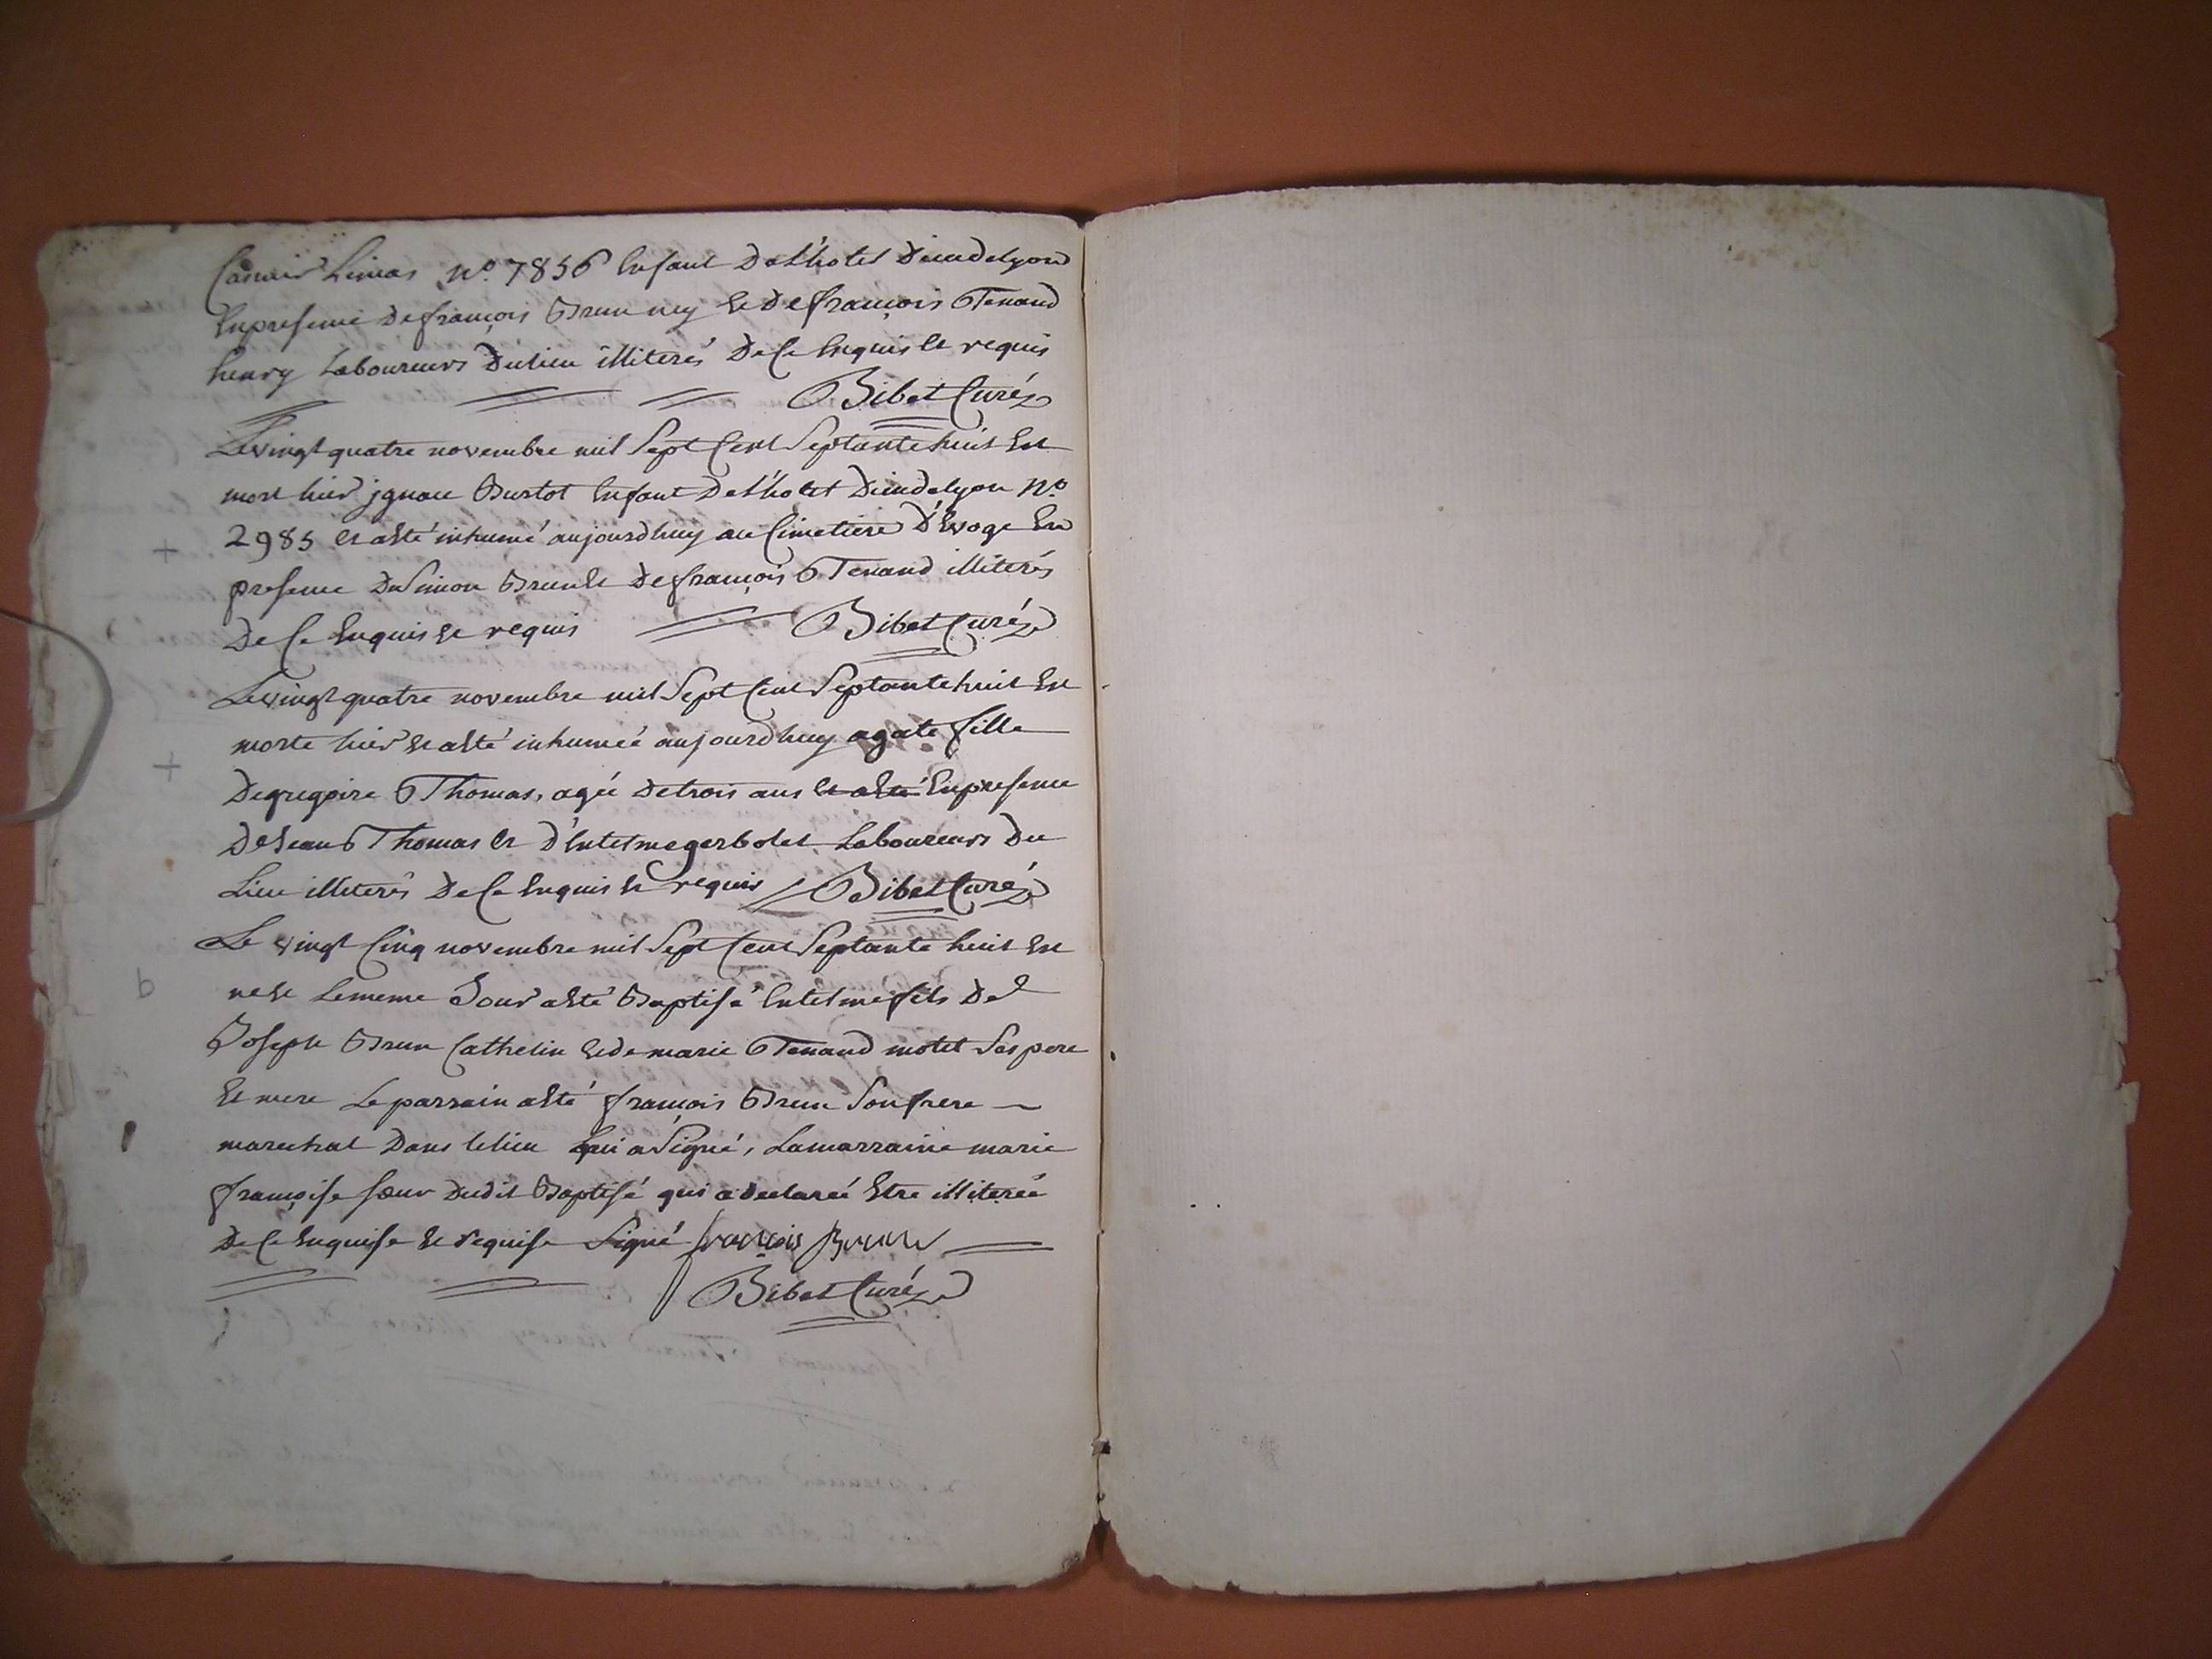 Limas n.º 7856 Enfant De L'hotel Dieu de lyon
En presence De françois Brun ney Et De françois Tenand
henry Laboureurs Du lieu illiterés De Ce Enquis Et requis
Bibet Curé
Le vingt quatre novembre mil Sept Cent Septante huit Est
mort hier jgnace Burtot Enfant De L'hotel Dieu de lyon n.º
2985 Et a Eté inhumé aujourdhuy au Cimetiere D'Evoge En
presence De Simon Brun Et De françois Tenand illiterés
De Ce Enquis Et requis Bibet Curé
Le vingt quatre novembre mil Sept Cent Septante huit Est
morte hier Et a Eté inhumeé aujourdhuy agate fille
De gregoire Thomas, ageé De trois ans Et a Eté En presence
De Jean Thomas Et D'Entelme gerbolet Laboureurs Du
Lieu illiterés De Ce Enquis Et requis Bibet Curé
Le vingt Cinq novembre mil Sept Cent Septante huit Est
ne Et Le meme Jour a Eté Baptisé Entelme fils De
Joseph Brun Cathelin Et de marie Tenand motet Ses pere
Et mere Le parrain a Eté françois Brun Son frere
marechal Dans le lieu qui a Signé, La marraine marie
françoise sœur Dudit Baptisé qui a declareé Etre illitereé
De Ce Enquise Et requise Signé francois Brun
Bibet Curé